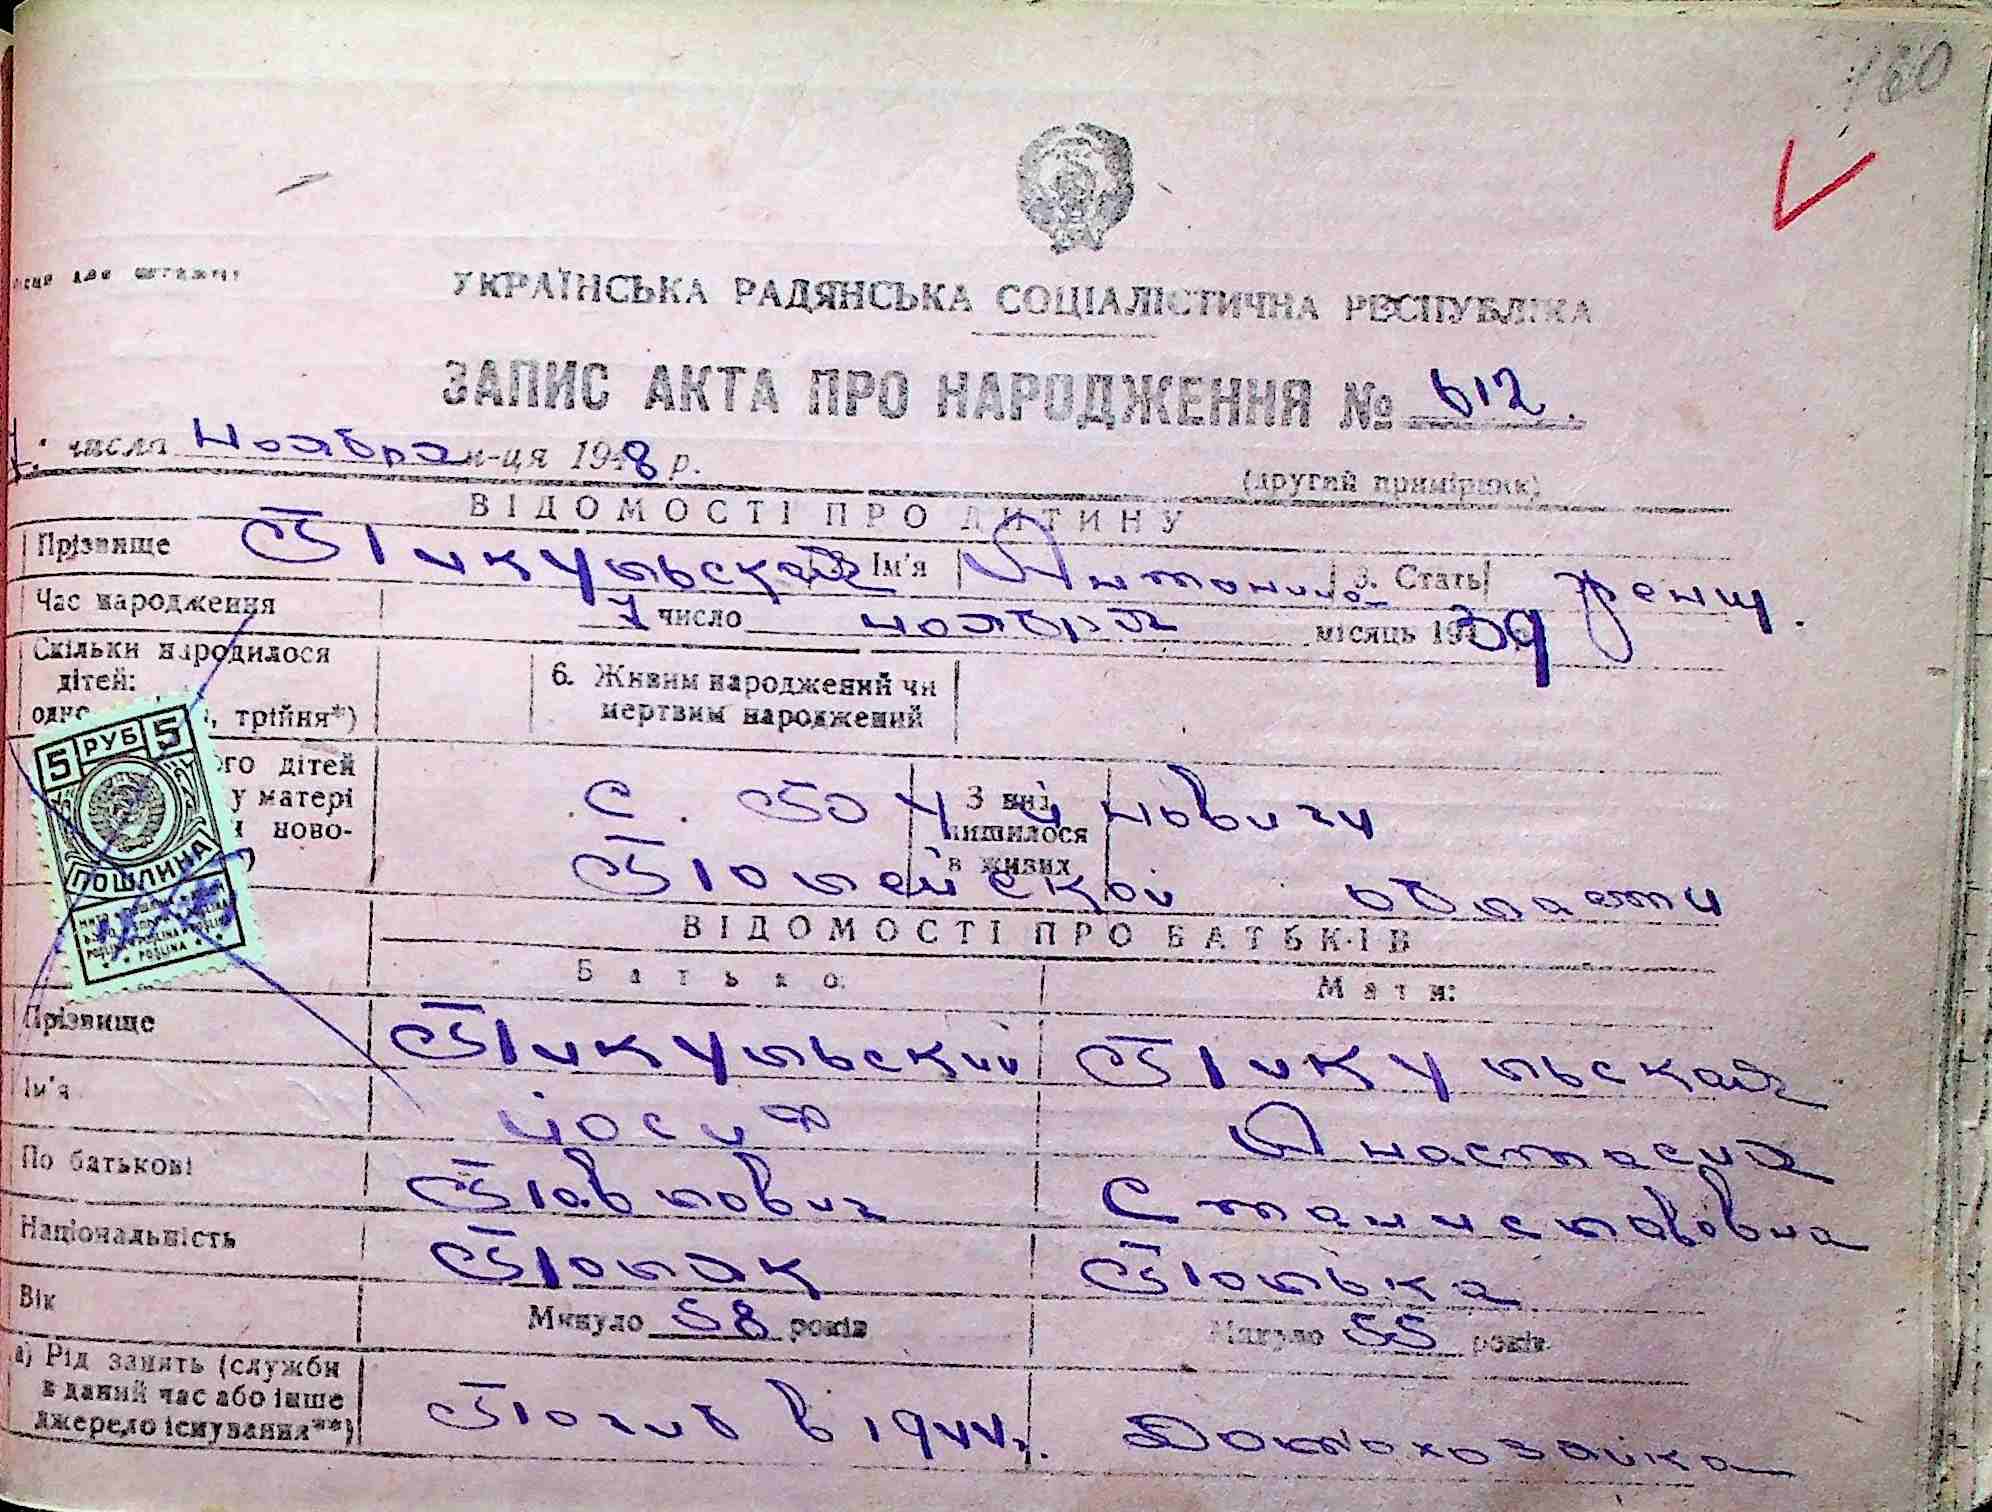 180
УКРАЇНСЬКА РАДЯНСЬКА СОЦІАЛІСТИЧНА РЕСПУБЛІКА
ЗАПИС АКТА ПРО НАРОДЖЕННЯ № 612.
числа ноября м-ця 1948 р.
(другий примірник)
ВІДОМОСТІ ПРО ДИТИНУ
Прізвище Пикульская Ім'я Антонина 3. Стать женщ.
Час народження 7 число ноября місяць 1939
Скільки народилося дітей: трійня*)
6. Живим народжений чи мертвим народжений
5 РУБ 5
ПОШЛИНА
го дітей
у матері
ново-
З них лишилося в живих
с.
Полесской области
ВІДОМОСТІ ПРО БАТЬКІВ
Батько: Мати:
Прізвище Пикульский Пикульская
Ім'я Йосиф Анастасия
По батькові Павлович Станиславовна
Національність Поляк Полька
Вік Минуло 58 років Минуло 55 років
а) Рід занять (служби в даний час або інше джерело існування**) Погиб в 1944 г. Домохозяйка